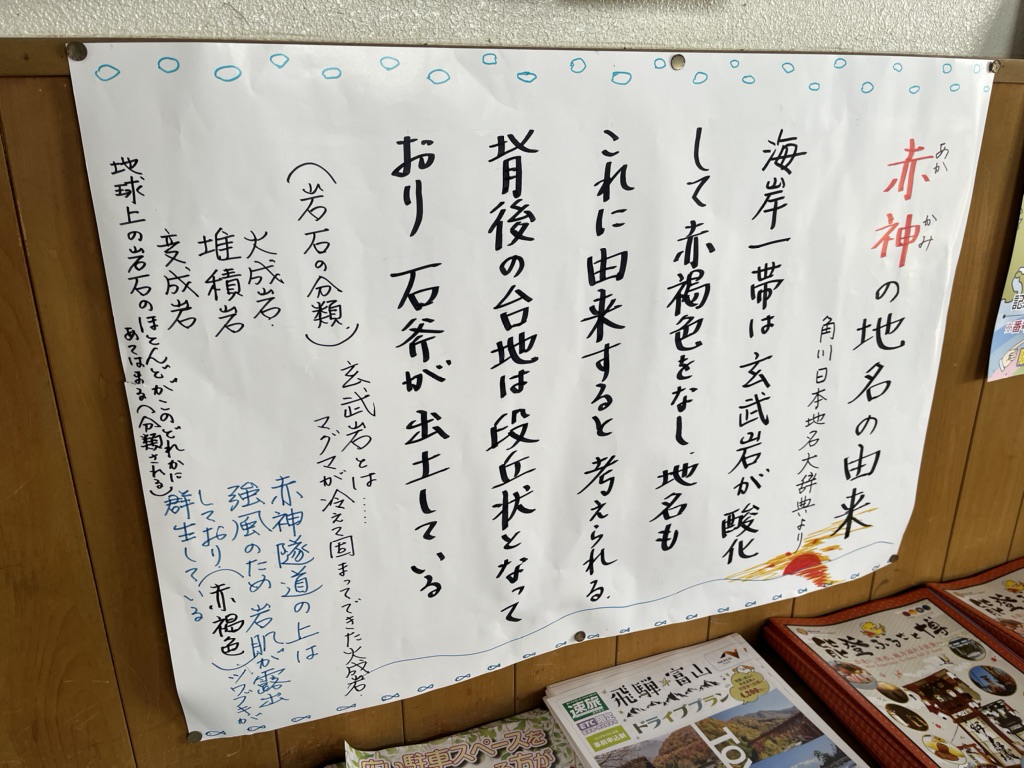 赤神の地名の由来
あか かみ
角川日本地名大辞典より
海岸一帯は玄武岩が酸化
して赤褐色をなし、地名も
これに由来すると考えられる.
背後の台地は段丘状となって
おり 石斧が出土している
(岩石の分類)
火成岩.
堆積岩
変成岩
地球上の岩石のほとんどがこのどれかに
あてはまる(分類される)
玄武岩とは……
マグマが冷えて固まってできた火成岩
赤神隧道の上は
強風のため岩肌が露出
しており(赤褐色)、シワスゲが
群生している
能登ふるさと博
速旅
飛騨・富山
ドライブプラン
ETC
駐車スペースを